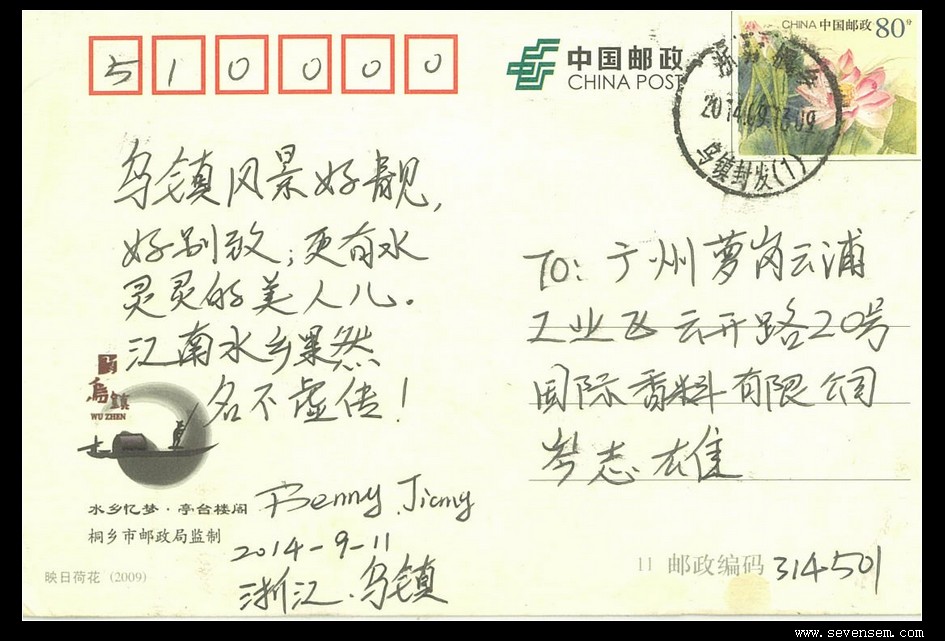 510000
中国邮政
CHINA POST
CHINA 中国邮政 80分
2014.09.13.09
乌镇封发(1)
乌镇风景好靓,
好别致;更有水
灵灵的美人儿.
江南水乡果然
名不虚传!
乌镇
WU ZHEN
水乡忆梦·亭台楼阁
桐乡市邮政局监制
Benny Jiang
2014-9-11
浙江.乌镇
映日荷花 (2009)
TO: 广州萝岗云浦
工业飞云开路20号
国际香料有限公司
岑志雄
11 邮政编码 314501
www.sevensem.com